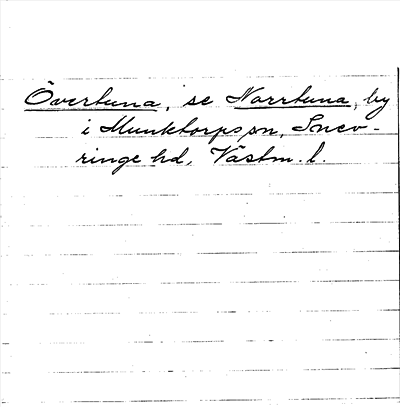 Övertuna, se Norrtuna, by
i Munktorps sn, Snev-
ringe hd, Västm. l.